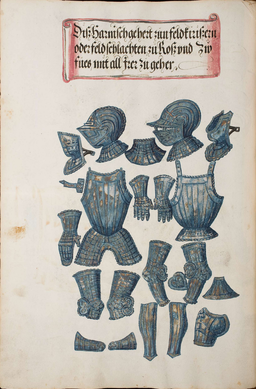 Diß Harnischgehert zun feldkirisern
oder feldschlachten zu Roß vnd Zw
fues mit all Irer zu geher,